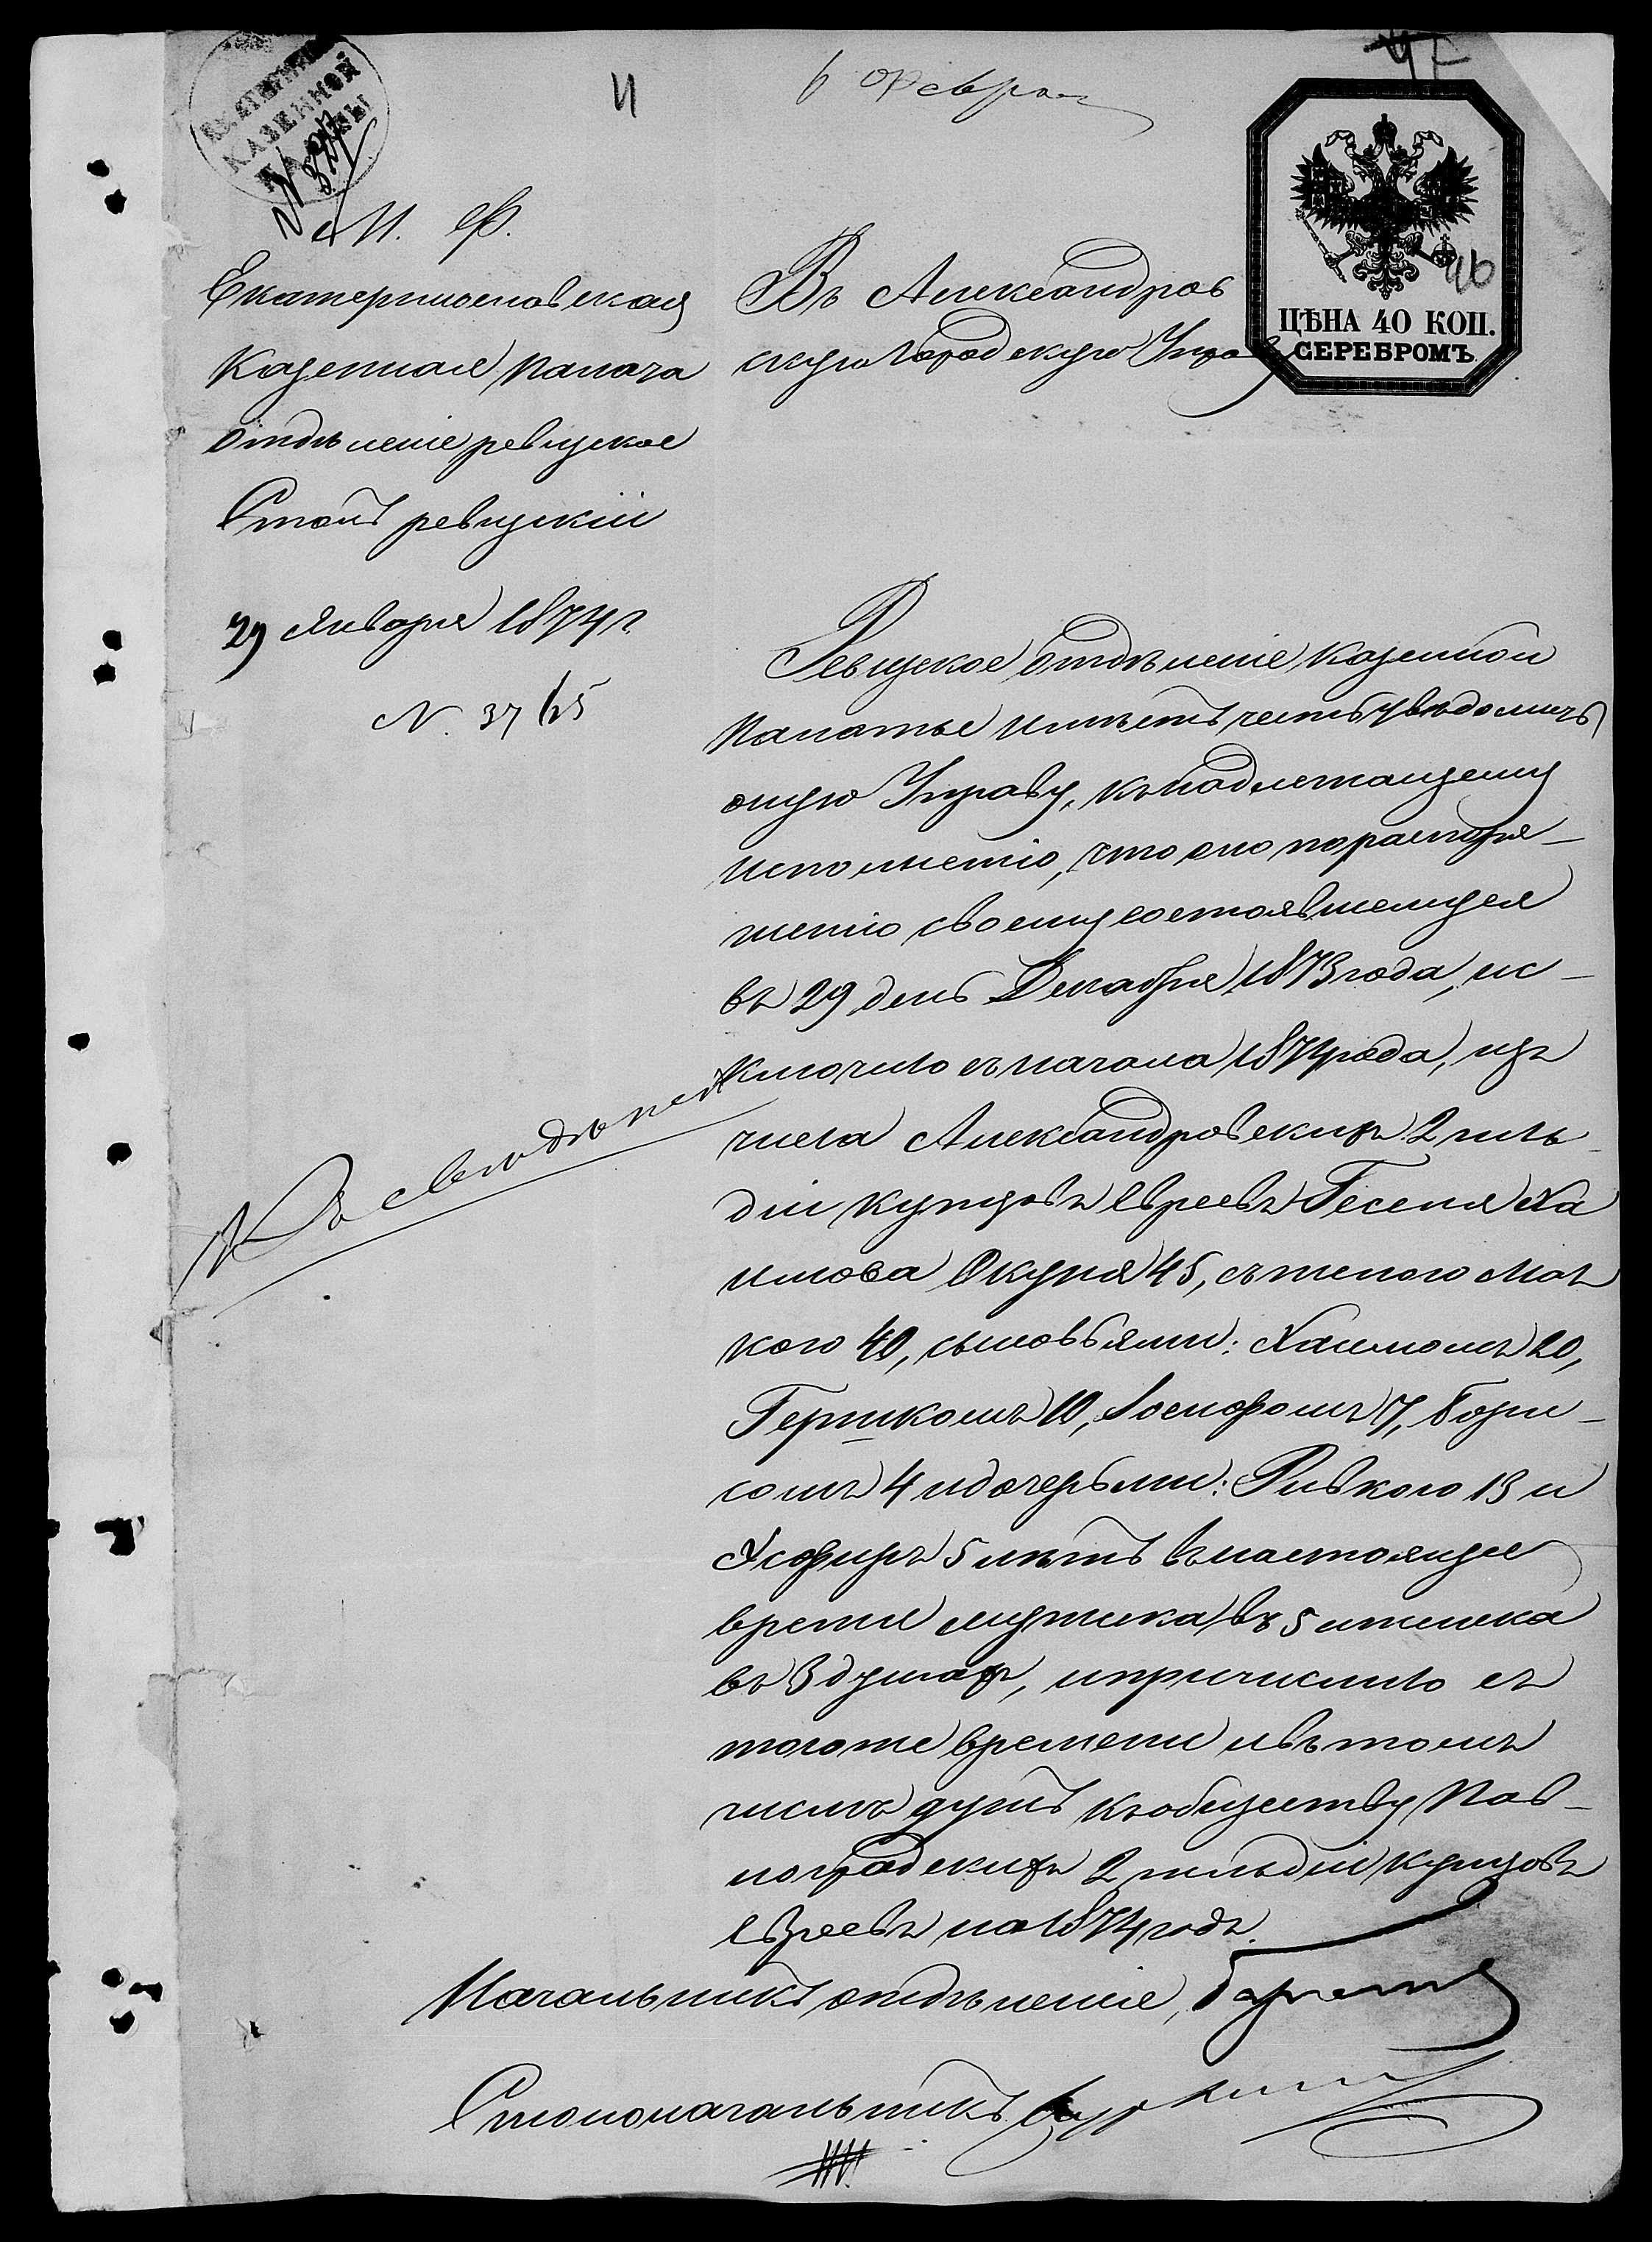 6 Февра
КАЗЕННОЙ
46
ЦѢНА 40 КОП.
СЕРЕБРОМЪ.
М. Ф.
Екатеринославская
Казенная Палата
Отдѣленіе ревизское
Столъ ревизскій
29 Января 1874 г.
N. 37
Въ Александров
скую Городскую Управу
Ревизское Отдѣленіе Казенной
Палаты имѣетъ честь увѣдомить
оную Управу, къ надлежащему
исполненію, что оно по распоря-
женію своему состоявшемуся
въ 29 день Декабря 1873 года, ис-
ключило съ начала 1874 года, изъ
числа Александровскихъ 2 гиль
діи купцовъ Евреевъ Геселя Ха
имова Окуня 45, съ женою Мал
кою 40, сыновьями: Хаимомъ 20,
Гершкомъ 10, Іосифомъ 7, Бори-
сомъ 4 и дочерьми: Ривкою 13 и
Эсфирь 5 лѣтъ въ настоящее
время мужеска въ 5 и женска
въ 3 душах, и причислило съ
того же времени и въ томъ
числѣ душъ къ обществу Пав-
лоградскихъ 2 гильдіи купцовъ
Евреевъ на 1874 годъ.
Къ свѣдѣнію
Начальникъ отдѣленія
Столоначальникъ